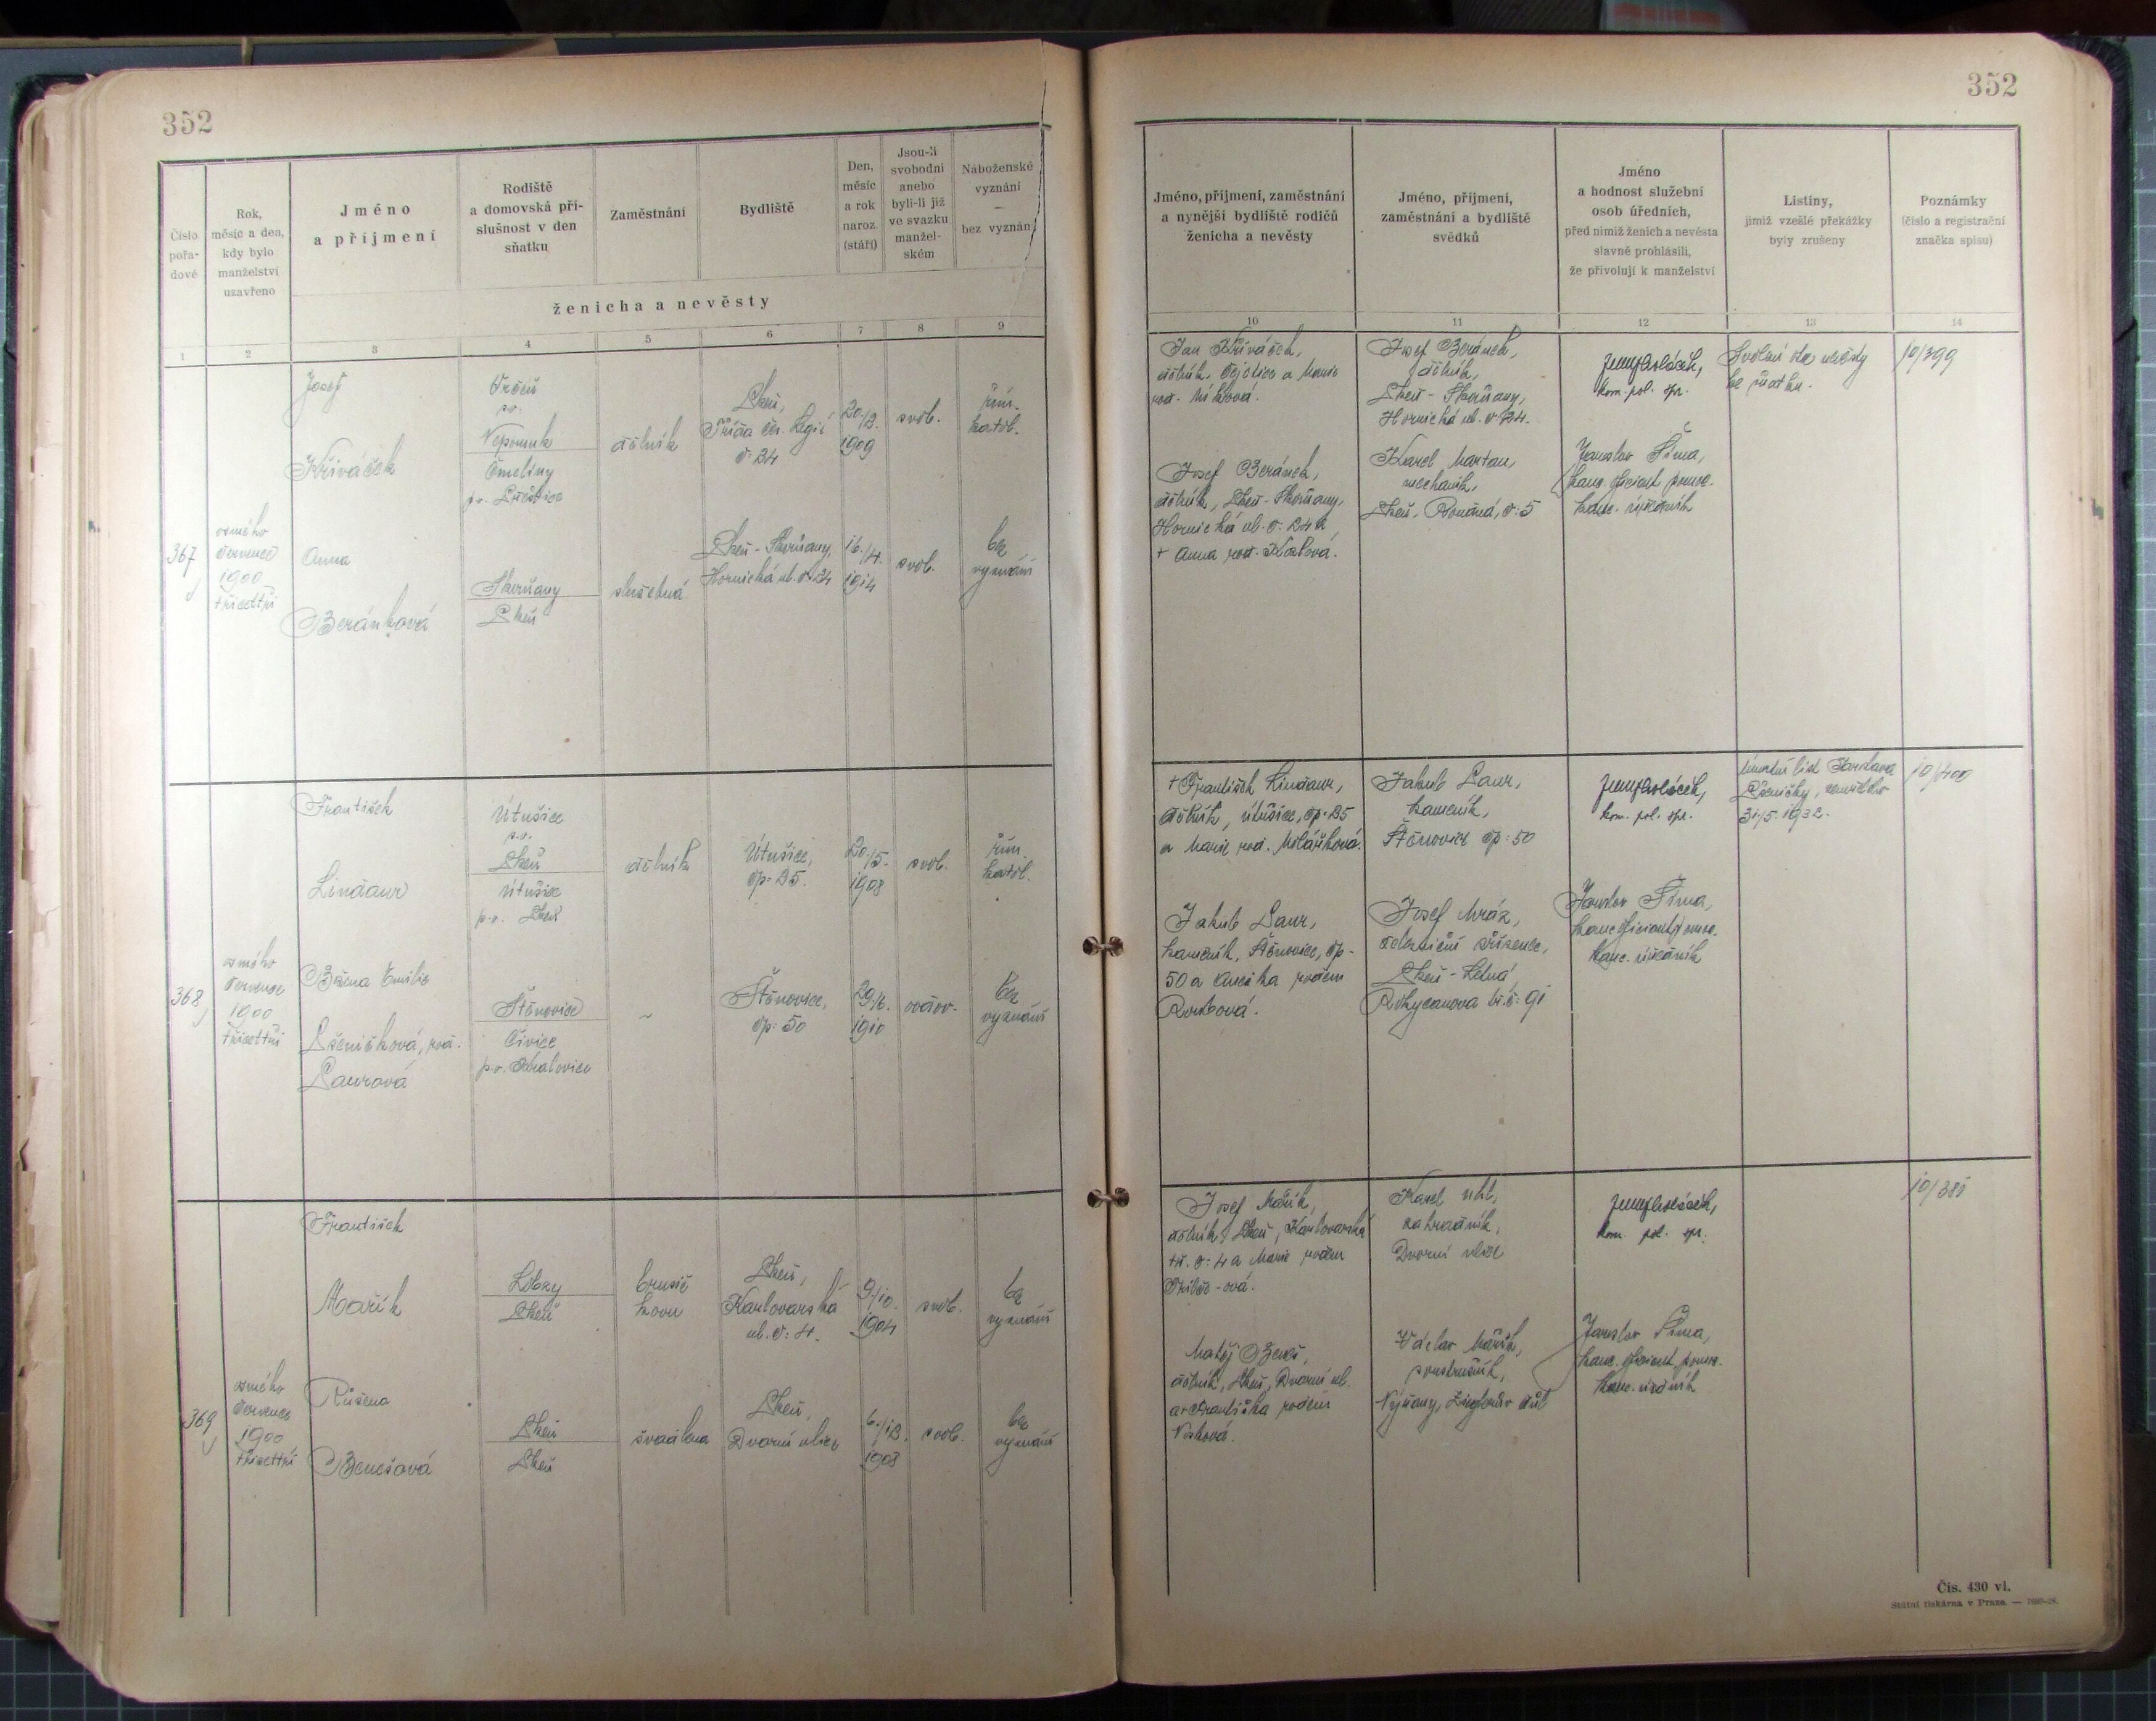 352
352
Číslo pořa-
dové
Rok,
měsíc a den,
kdy bylo
manželství
uzavřeno
Jméno
a příjmení
Rodiště
a domovská pří-
slušnost v den
sňatku
Zaměstnání
Bydliště
Den,
měsíc
a rok
naroz.
(stáří)
Jsou-li
svobodni
anebo
byli-li již
ve svazku
manžel-
ském
Náboženské
vyznání
—
bez vyznání
ženicha a nevěsty
1 2 3 4 5 6 7 8 9
Jméno, příjmení, zaměstnání
a nynější bydliště rodičů
ženicha a nevěsty
Jméno, příjmení,
zaměstnání a bydliště
svědků
Jméno
a hodnost služební
osob úředních,
před nimiž ženich a nevěsta
slavně prohlásili,
že přivolují k manželství
Listiny,
jimiž vzešlé překážky
byly zrušeny
Poznámky
(číslo a registrační
značka spisu)
10 11 12 13 14
367
osmého
července
1900
třicettři
Josef
Křiváček
p.o.
Nepomuk
dělník
Plzeň,
Třída čs. Legií
č. 24
1909
svob.
řím.
katol.
Anna
Beránková
Skvrňany
Plzeň
služebná
Plzeň - Skvrňany,
Hornická ul. č. 24
16./4.
1914
svob.
bez
vyznání
Jan Křiváček,
a Marie
Josef Beránek,
dělník, Plzeň - Skvrňany,
Hornická ul. č: 24 a
+ Anna roz.
Josef Beránek,
dělník,
Plzeň - Skvrňany,
Hornická ul. č 24.
Karel Martan,
mechanik,
Plzeň, č: 5
kom. pol. spr.
Jaroslav Šíma,
kanc. oficiant pomoc.
10/399
368
osmého
července
1900
třicettři
František
Lindaur
Útušice
p.o.
Plzeň
Útušice
p.o. Plzeň
dělník
Útušice,
čp: 25.
20./5.
1908
svob.
řím.
katol.
Božena Emilie
Pšeničková, roz.
Laurová
Štěnovice
p.o. Kralovice
Štěnovice,
čp: 50
29./6.
1910
ovdov.
bez
vyznání
+ František Lindaur,
dělník, Útušice, čp: 25
a Marie roz.
Jakub Laur,
kameník, Štěnovice, čp-
50 a Anežka rozená
Jakub Laur,
kameník,
Štěnovice čp: 50
Josef Mráz,
železniční zřízenec,
Plzeň - Letná,
Rokycanova tř. č: 91
kom. pol. spr.
Jaroslav Šíma,
kanc. oficiant pomoc.
Úmrtní list
Pšeničky, zemřelého
31./5. 1932.
10/400
369
osmého
července
1900
třicettři
František
Mařík
Lobzy
Plzeň
brusič
kovu
Plzeň,
Karlovarská
ul. č: 4.
9./10.
1904
svob.
bez
vyznání
Růžena
Benešová
Plzeň
Plzeň
švadlena
Plzeň,
Dvorní ulice
6./12.
1908
svob.
bez
vyznání
Josef Mařík,
dělník, Plzeň, Karlovarská
tř. č: 4 a Marie rozen
Matěj Beneš,
dělník, Plzeň, Dvorní ul.
a Františka rozená
Karel Uhl,
zahradník,
Dvorní ulice
Václav Mařík,
soustružník,
kom. pol. spr.
Jaroslav Šíma,
kanc. oficiant pomoc.
10/381
Čís. 430 vl.
Státní tiskárna v Praze. —